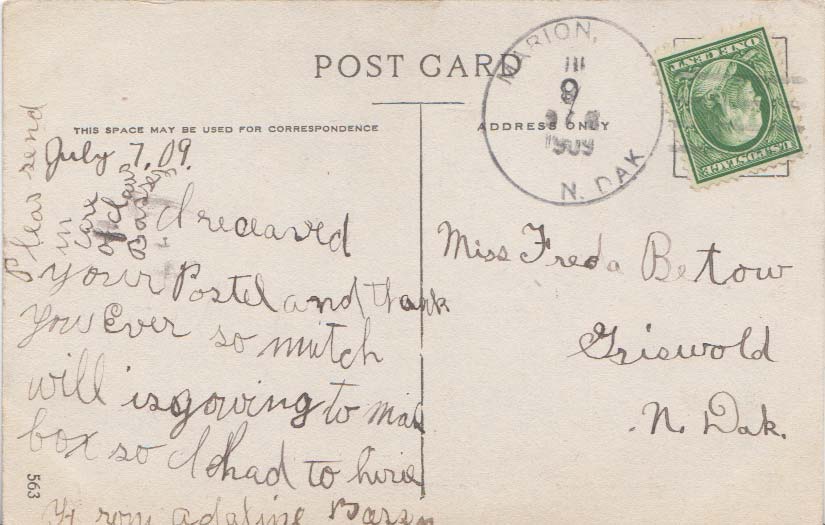 POST CARD
THIS SPACE MAY BE USED FOR CORRESPONDENCE
ADDRESS ONLY
MARION,
9
1909
N. DAK
ONE CENT
U.S. POSTAGE
July 7, 09.
Pleas send
in
care
of
I receaved
your Postel and thank
you Ever so mutch
will is gowing to mail
box so I had to hire
From adaline
Miss Freda Betow
Griswold
N. Dak.
563